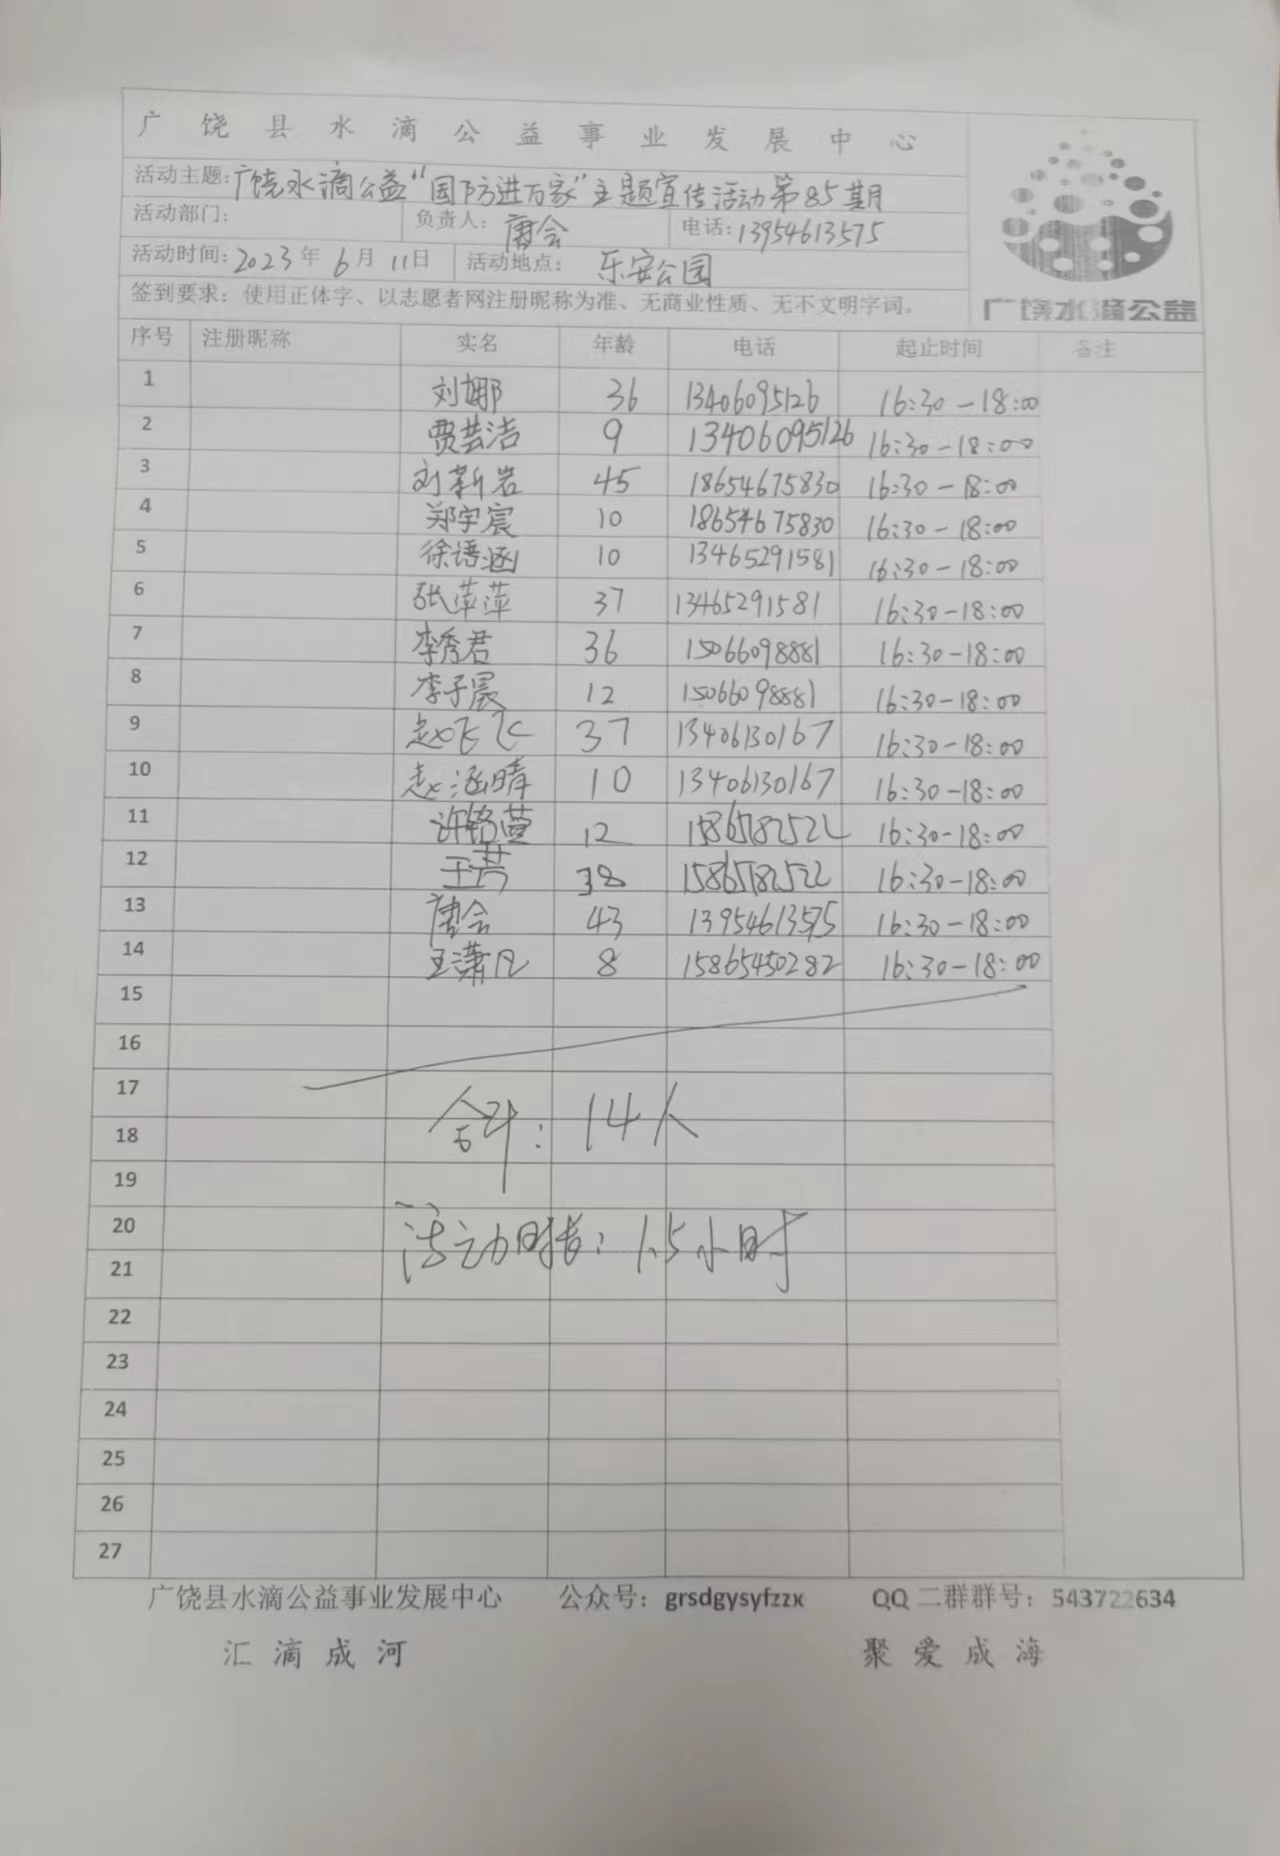 广饶县水滴公益事业发展中心
活动主题:广饶水滴公益“国防进万家”主题宣传活动第85期
活动部门: 负责人: 唐会 电话:13954613575
活动时间:2023年6月11日 活动地点: 乐安公园
签到要求:使用正体字、以志愿者网注册昵称为准、无商业性质、无不文明字词。
广饶水滴公益
序号 注册昵称 实名 年龄 电话 起止时间 备注
1 刘娜 36 13406095126 16:30-18:00
2 贾芸洁 9 13406095126 16:30-18:00
3 刘新岩 45 18654675830 16:30-18:00
4 郑宇宸 10 18654675830 16:30-18:00
5 徐语涵 10 13465291581 16:30-18:00
6 张萍萍 37 13465291581 16:30-18:00
7 李秀君 36 15066098881 16:30-18:00
8 李子宸 12 15066098881 16:30-18:00
9 赵飞飞 37 13406130167 16:30-18:00
10 赵涵晴 10 13406130167 16:30-18:00
11 许铭萱 12 15865782522 16:30-18:00
12 王 38 15865782522 16:30-18:00
13 唐会 43 13954613575 16:30-18:00
14 王潇凡 8 15865450282 16:30-18:00
15
16
17
合计: 14人
18
19
20
活动时长: 1.5小时
21
22
23
24
25
26
27
广饶县水滴公益事业发展中心 公众号: grsdgysyfzzx QQ二群群号: 543722634
汇滴成河 聚爱成海